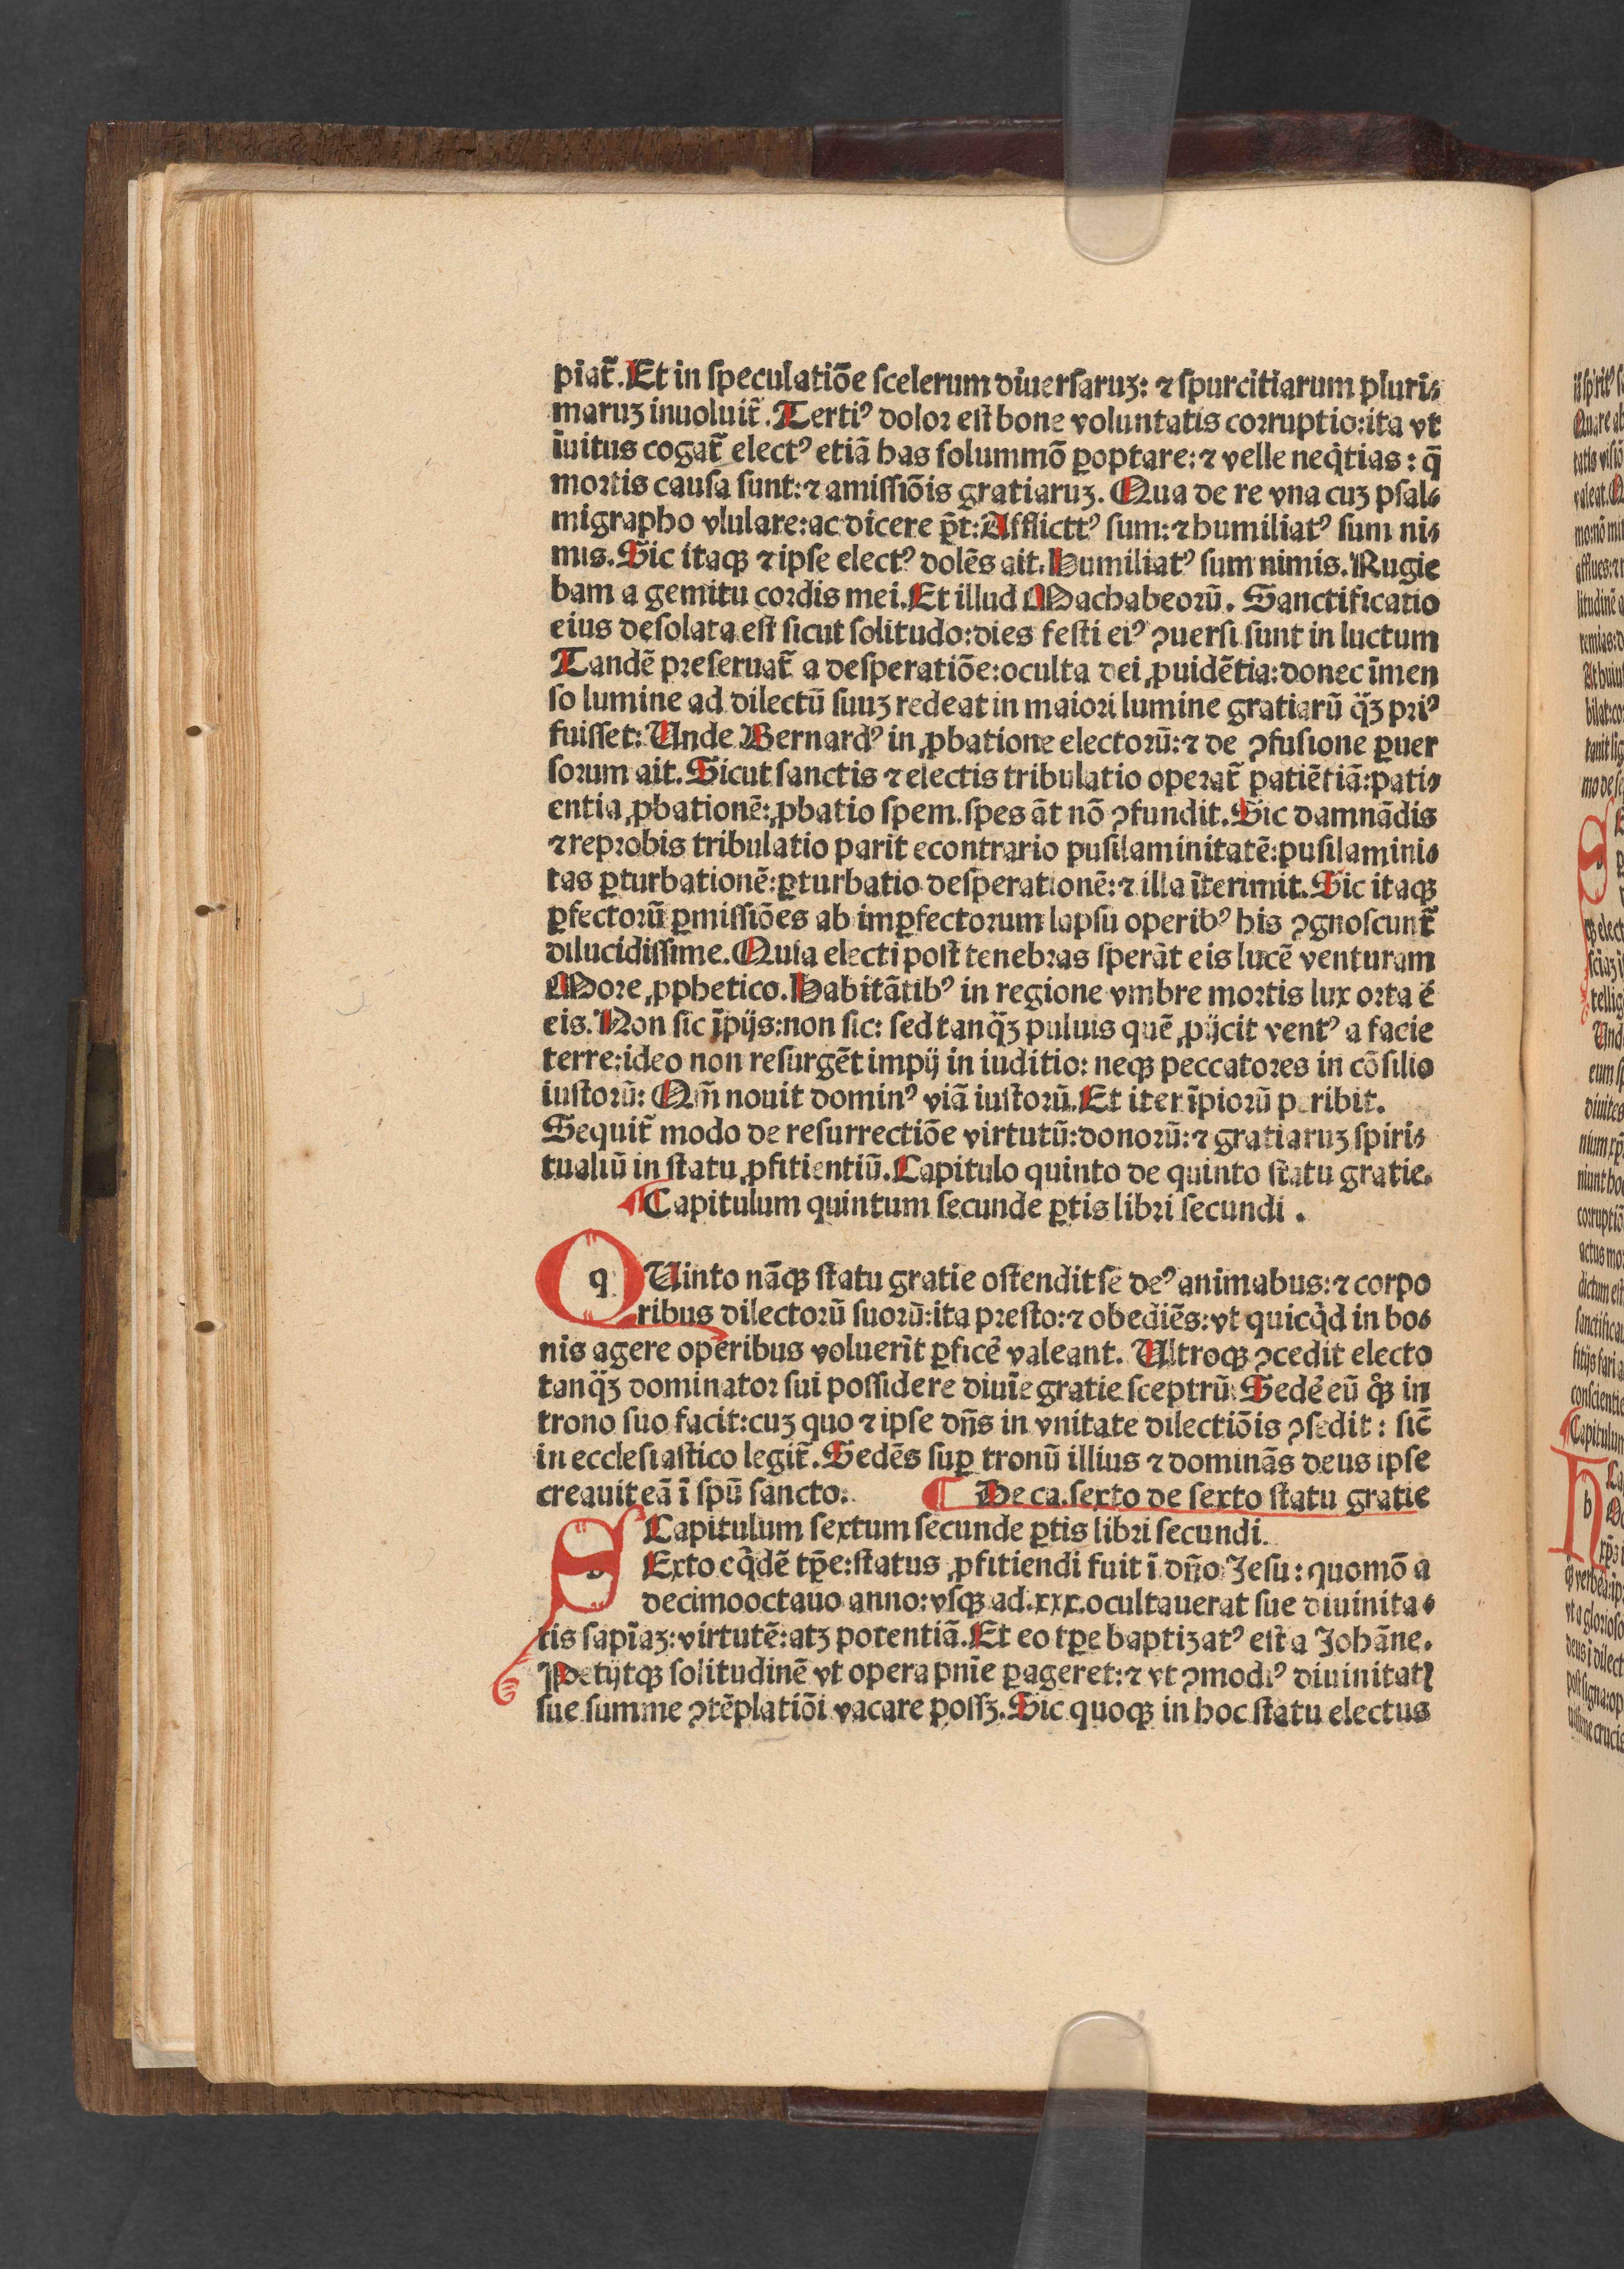 piat̃. Et in ſpeculatiõe ſcelerum diuerſaruʒ: ⁊ ſpurcitiarum pluri⸗
maruʒ inuoluit̃. Tertiꝰ dolor eſt bone voluntatis corruptio: ita vt
ĩuitus cogat̃ electꝰ etiã has ſolummõ ꝑoptare: ⁊ velle neq̇tias: q̃
mortis cauſa ſunt: ⁊ amiſſiõis gratiaruʒ. Qua de re vna cuʒ pſal⸗
migrapho vlulare: ac dicere p̃t: Afflicttꝰ ſum: ⁊ humiliatꝰ ſum ni⸗
mis. Sic itaqꝫ ⁊ ipſe electꝰ dolẽs ait. Humiliatꝰ ſum nimis. Rugie
bam a gemitu cordis mei. Et illud Machabeorũ. Sanctificatio
eius deſolata eſt ſicut ſolitudo: dies feſti eiꝰ ꝯuerſi ſunt in luctum
Tandẽ preſeruat̃ a deſperatiõe: oculta dei ꝓuidẽtia: donec ĩmen
ſo lumine ad dilectũ ſuuʒ redeat in maiori lumine gratiarũ q̈ʒ priꝰ
fuiſſet: Unde Bernardꝰ in ꝓbatione electorũ: ⁊ de ꝯfuſione ꝑuer
ſorum ait. Sicut ſanctis ⁊ electis tribulatio operat̃ patiẽtiã: pati⸗
entia ꝓbationẽ: ꝓbatio ſpem. ſpes ãt nõ ꝯfundit. Sic damnãdis
⁊ reprobis tribulatio parit econtrario puſilaminitatẽ: puſilamini⸗
tas ꝑturbationẽ: ꝑturbatio deſperationẽ: ⁊ illa ĩterimit. Sic itaqꝫ
ꝑfectorũ ꝑmiſſiões ab imꝑfectorum lapſu operibꝰ his ꝯgnoſcunt̃
dilucidiſſime. Quia electi poſt tenebras ſperãt eis lucẽ venturam
More ꝓphetico. Habitãtibꝰ in regione vmbre mortis lux orta ẽ
eis. Non ſic ĩpijs: non ſic: ſed tanq̈ʒ puluis quẽ ꝓijcit ventꝰ a facie
terre: ideo non reſurgẽt impij in iuditio: neqꝫ peccatores in cõſilio
iuſtorũ: Qm̃ nouit dominꝰ viã iuſtorũ. Et iter ĩpiorũ peribit.
Sequit̃ modo de reſurrectiõe virtutũ: donorũ: ⁊ gratiaruʒ ſpiri⸗
tualiũ in ſtatu ꝓfitientiũ. Capitulo quinto de quinto ſtatu gratie.
¶ Capitulum quintum ſecunde ꝑtis libri ſecundi.
QUinto nãqꝫ ſtatu gratie oſtendit ſe deꝰ animabus: ⁊ corpo
ribus dilectorũ ſuorũ: ita preſto: ⁊ obediẽs: vt quicq̇d in bo⸗
nis agere operibus voluerĩt ꝑficẽ valeant. Ultroqꝫ ꝯcedit electo
tanq̈ʒ dominator ſui poſſidere diuĩe gratie ſceptrũ. Sedẽ eũ q̊ꝫ in
trono ſuo facit: cuʒ quo ⁊ ipſe dñs in vnitate dilectiõis ꝯſedit: ſic̃
in eccleſiaſtico legit̃. Sedẽs ſuꝑ tronũ illius ⁊ dominãs deus ipſe
creauit eã ĩ ſpũ ſancto. ¶ De ca. ſexto de ſexto ſtatu gratie
Capitulum ſextum ſecunde ꝑtis libri ſecundi.
SExto eq̇dẽ tp̃e: ſtatus ꝓfitiendi fuit ĩ dño Jeſu: quomõ a
decimooctauo anno: vſqꝫ ad .xxx. ocultauerat ſue diuinita⸗
tis ſapĩaʒ: virtutẽ: atʒ potentiã. Et eo tp̃e baptiʒatꝰ eſt a Johãne.
Petijtqꝫ ſolitudinẽ vt opera pnĩe ꝑageret: ⁊ vt ꝯmodiꝰ diuinitatꝭ
ſue ſumme ꝯtẽplatiõi vacare poſſʒ. Sic quoqꝫ in hoc ſtatu electus